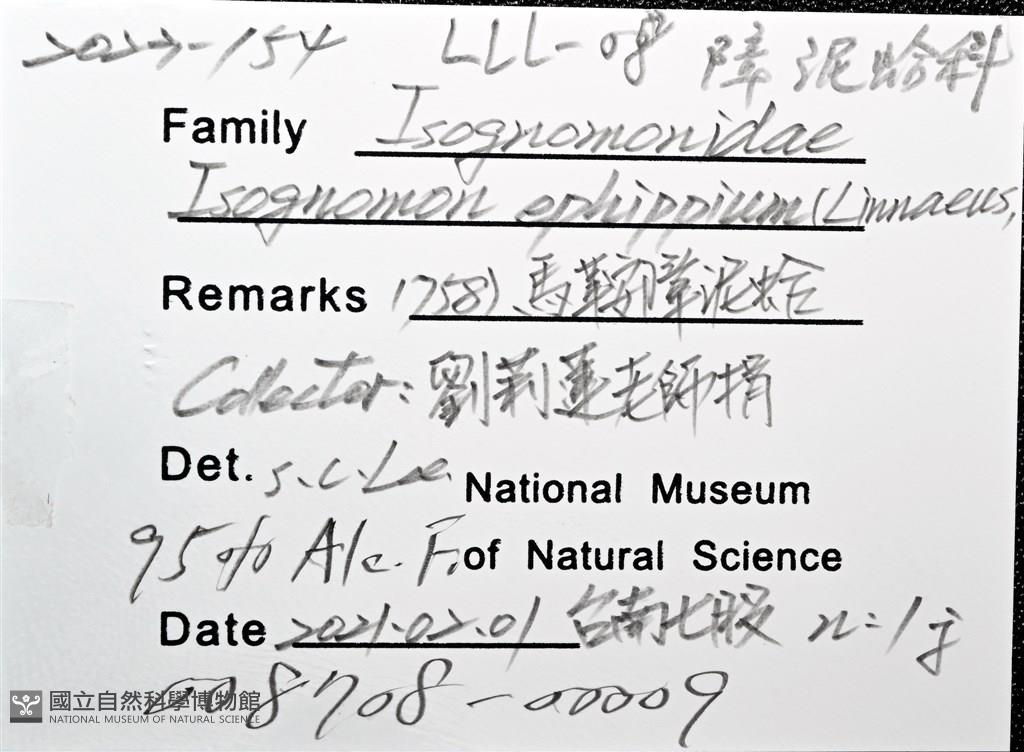 2022-154 LLL-08 障泥蛤科
Family Isognomonidae
Isognomon ephippium (Linnaeus,
Remarks 1758) 馬鞍障泥蛤
Collector: 劉莉蓮老師捐
Det. S.C.Lee. National Museum
95% Alc. F. of Natural Science
Date 2021.02.01 台南七股 n=1
008708-00009
國立自然科學博物館
NATIONAL MUSEUM OF NATURAL SCIENCE